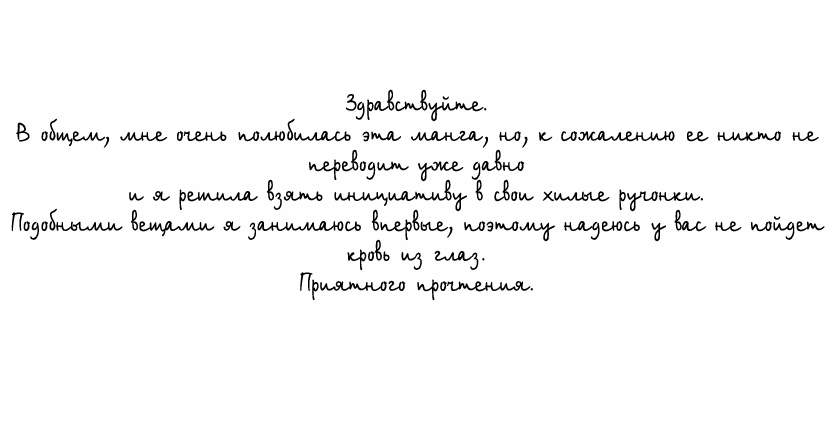 Здравствуйте.
В общем, мне очень полюбилась эта манга, но, к сожалению ее никто не
переводит уже давно
и я решила взять инициативу в свои хилые ручонки.
Подобными вещами я занимаюсь впервые, поэтому надеюсь у вас не пойдет
кровь из глаз.
Приятного прочтения.